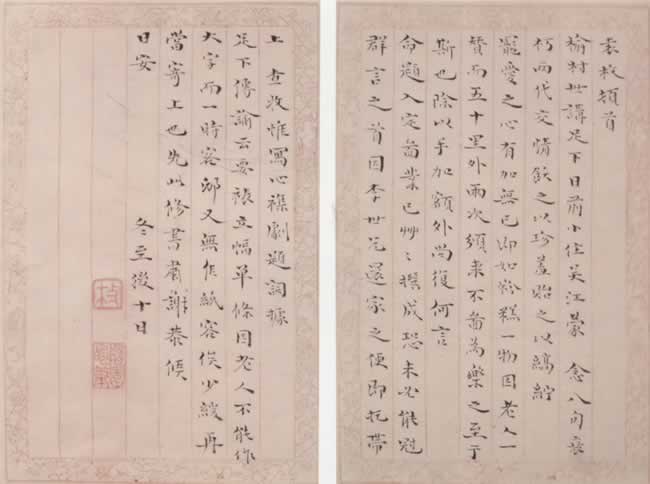 袁枚頓首
榆村世講足下日前小住吳江蒙 念八旬衰
朽兩代交情飫之以珍羞貽之以縞紵
寵愛之心有加無已即如粉糕一物因老人一
贊而五十里外兩次頒來不啚為樂之至于
斯也除以手加額外尚復何言
命題入定啚業已艸〻撰成恐未必能冠
群言之首因李世兄還家之便即托帶
上 查收惟寫心襍劇題詞據
足下傳諭云要裱立幅單條因老人不能作
大字而一時客邸又無佳紙容俟少緩再
當寄上也先此修書肅謝恭候
日安 冬至後十日